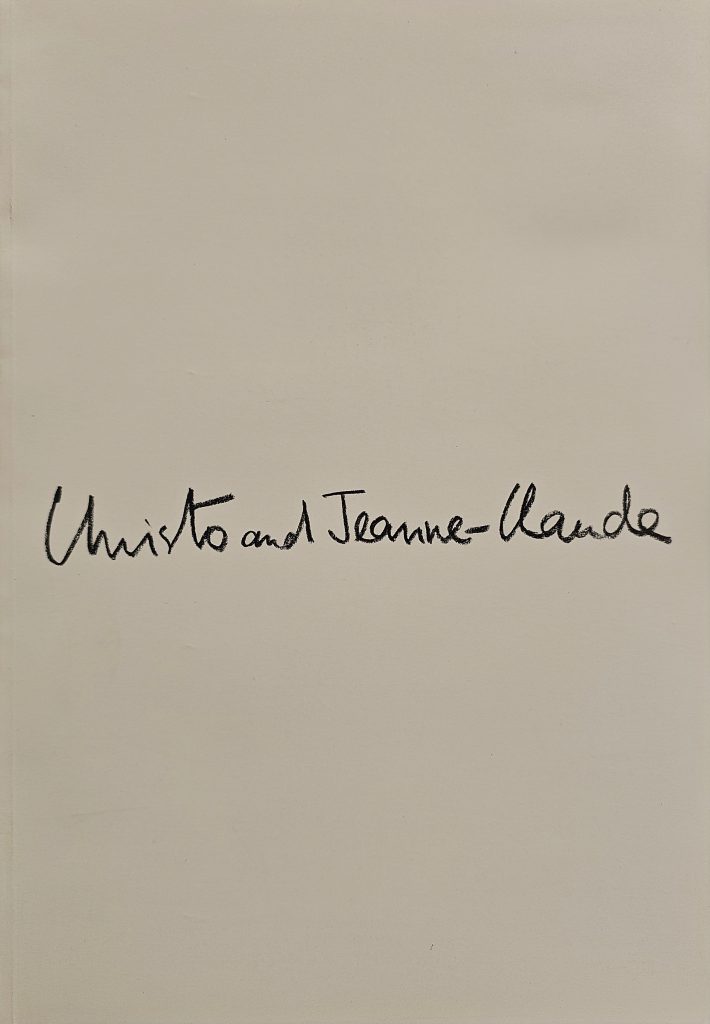 Christo and Jeanne-Claude